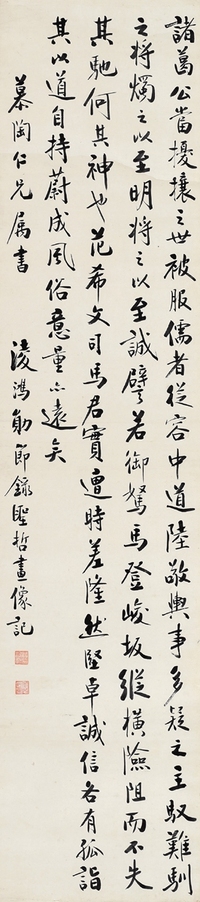 諸葛公當擾攘之世被服儒者從容中道陸敬輿事多疑之主馭難馴
之將燭之以至明將之以至誠譬若御駑馬登峻坂縱橫險阻而不失
其馳何其神也范希文司馬君實遭時差隆然堅卓誠信各有孤詣
其以道自持蔚成風俗意量亦遠矣
慕陶仁兄属書
淩鴻勛節錄聖哲畫像記